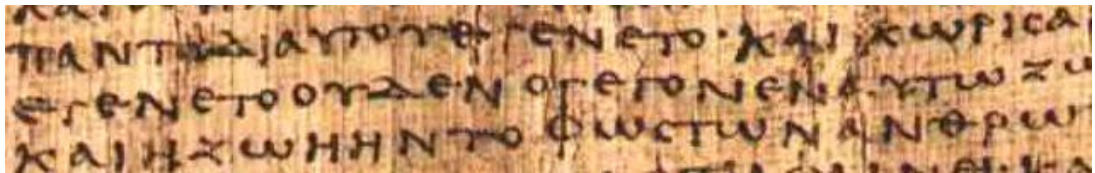 ΠΑΝΤΑΔΙΑΥΤΟΥΕΓΕΝΕΤΟ·ΚΑΙΧΩΡΙΣΑ
ΕΓΕΝΕΤΟΟΥΔΕΝΟΓΕΓΟΝΕΝΕΝΑΥΤΩΖΩ
ΚΑΙΗΖΩΗΗΝΤΟΦΩΣΤΩΝΑΝΘΡΩΠ